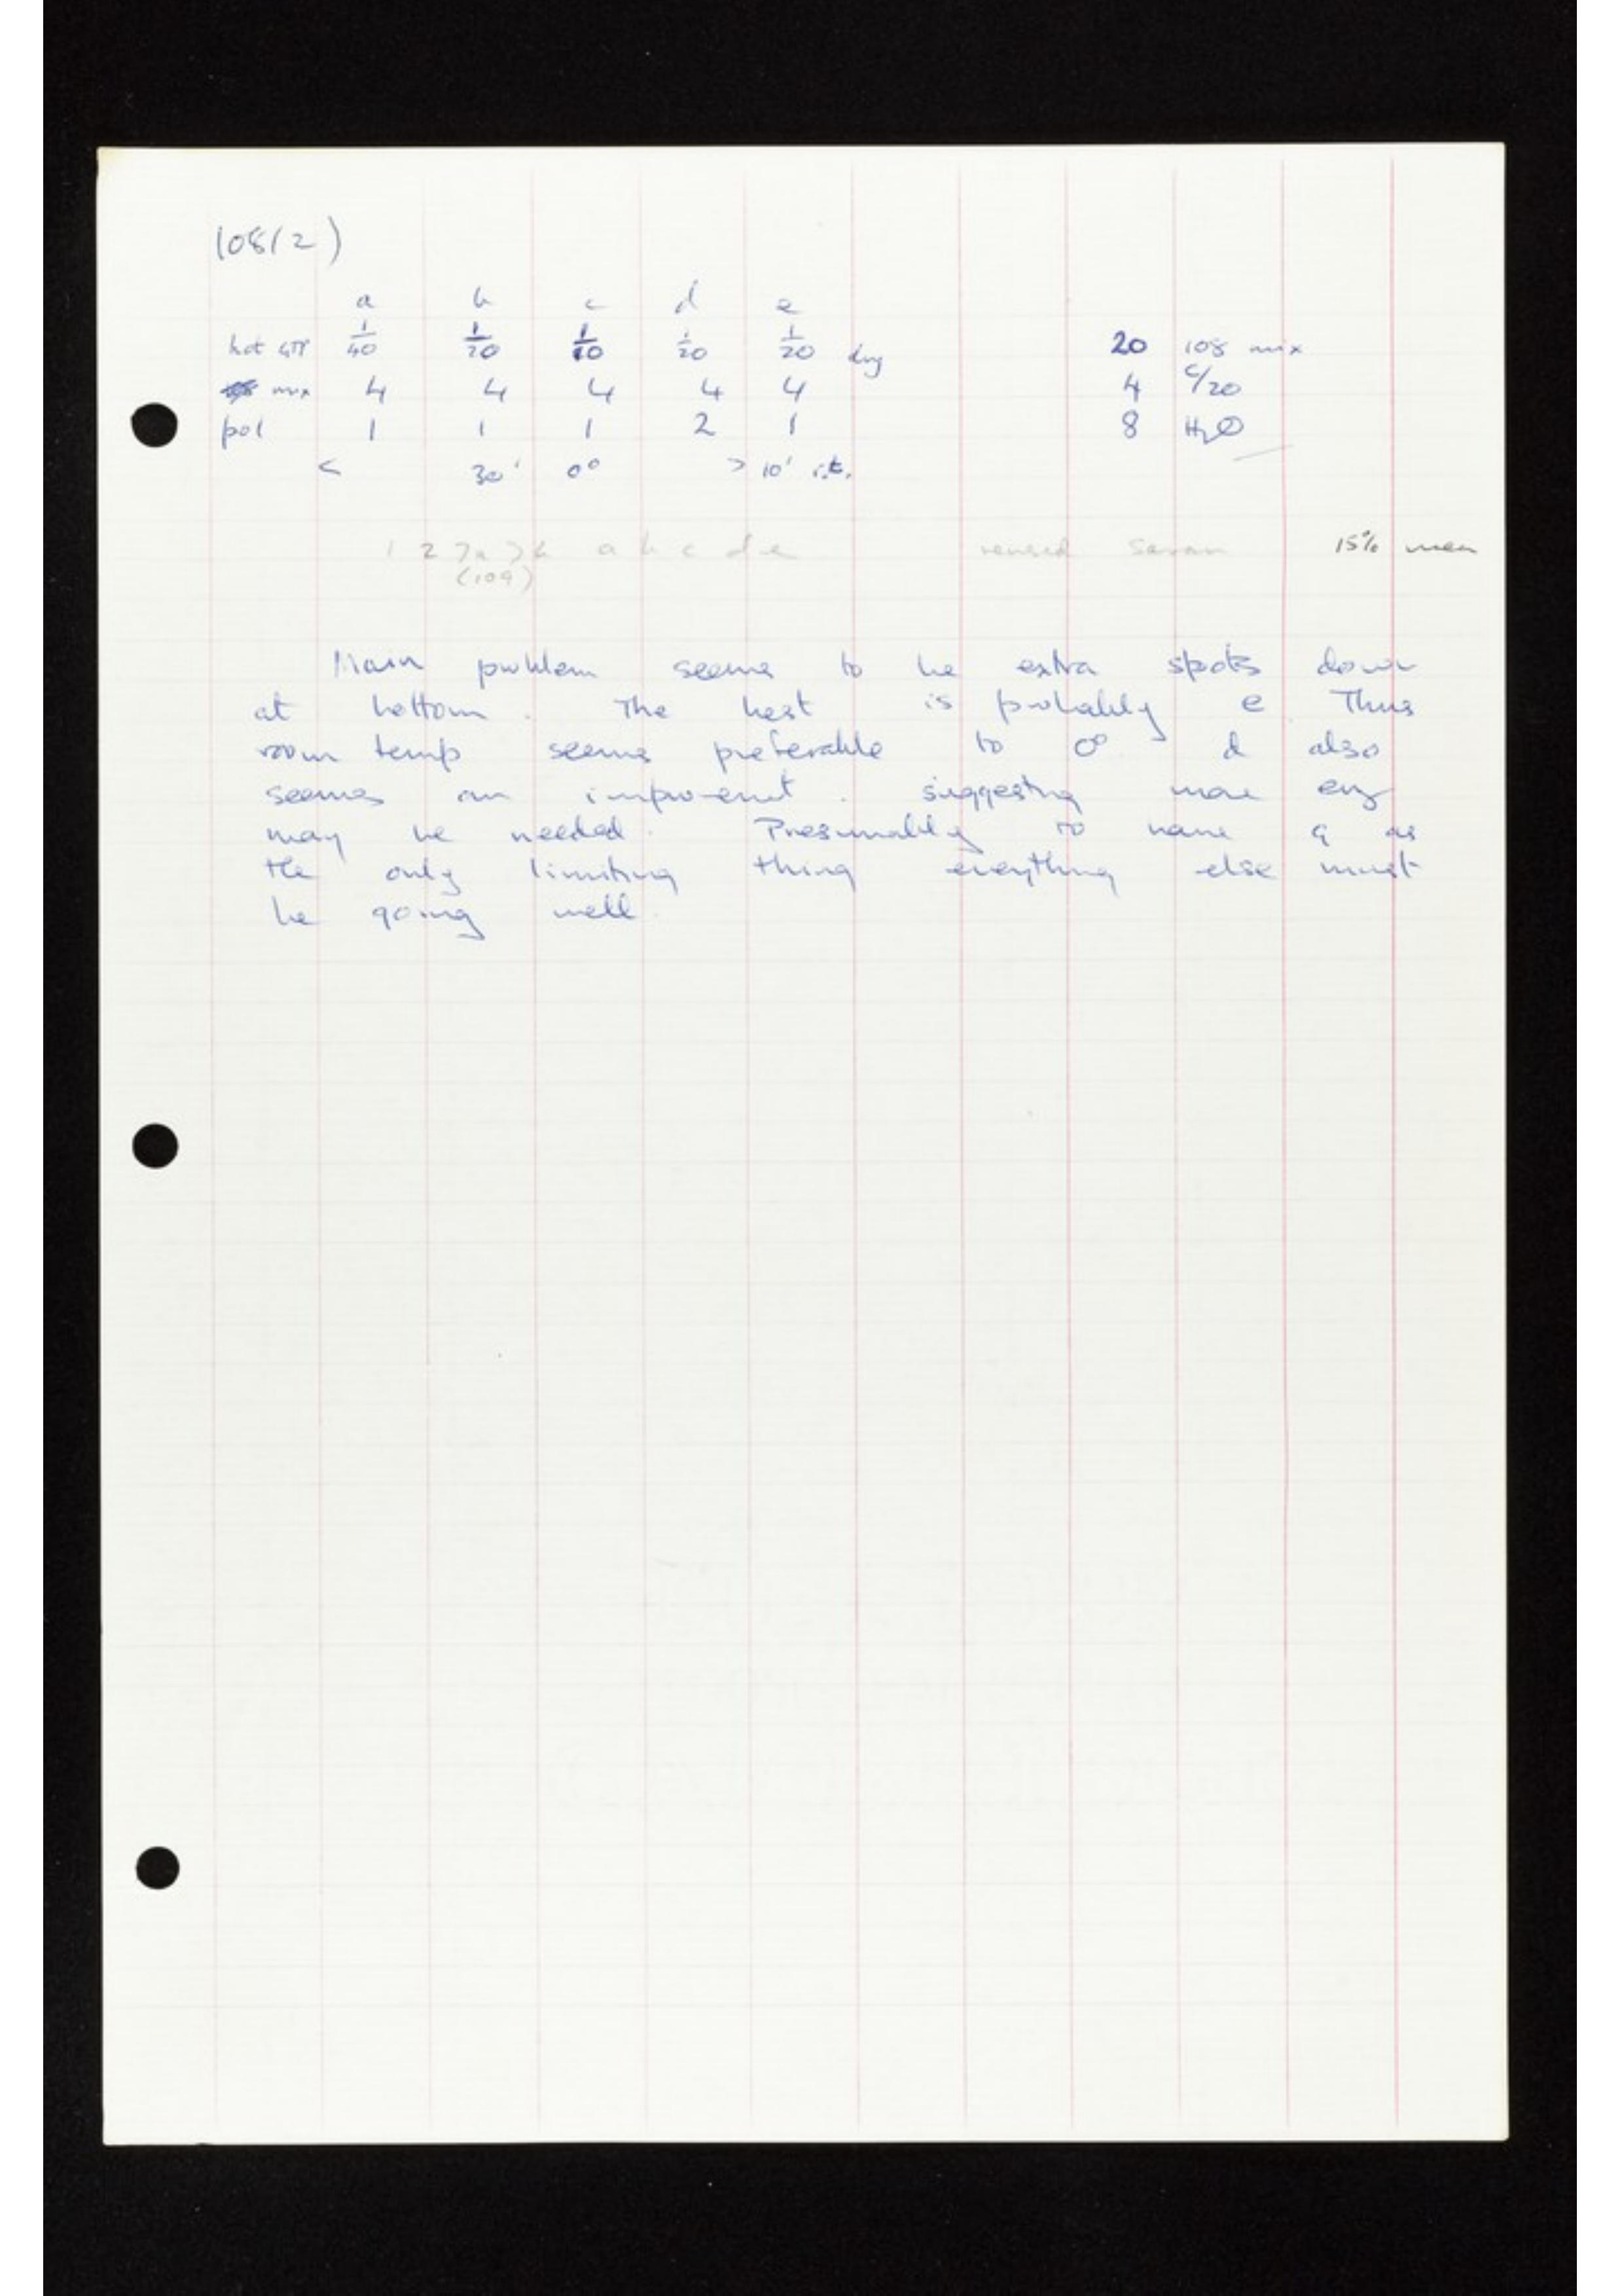 108(2)
a b c d e
hot GTP 1/40 1/20 1/10 1/20 1/20 dry 20 108 mix
mix 4 4 4 4 4 4 C/20
pol 1 1 1 2 1 8 H2O
< 30' 0° > 10' r.t.
1 2 a b c d e 15%
(109)
Main problem seems to be extra spots down
at bottom. The best is probably e Thus
room temp seems preferable to 0° d also
seems an improvement. suggesting more enz
may be needed. Presumably to have G as
the only limiting thing everything else must
be going well.